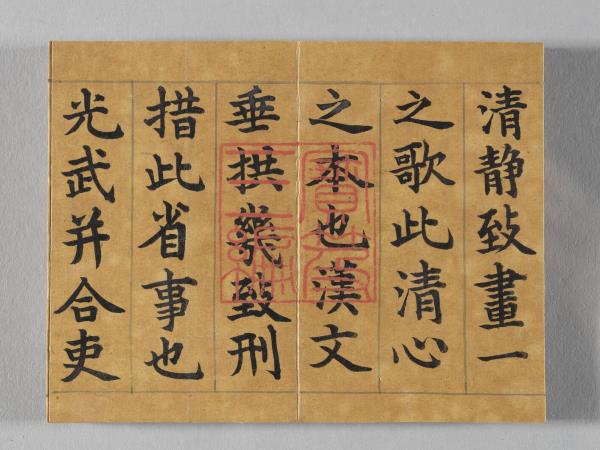 清静致畫一
之歌此清心
之本也漢文
垂拱幾致刑
措此省事也
光武并合吏
寶笈
三編